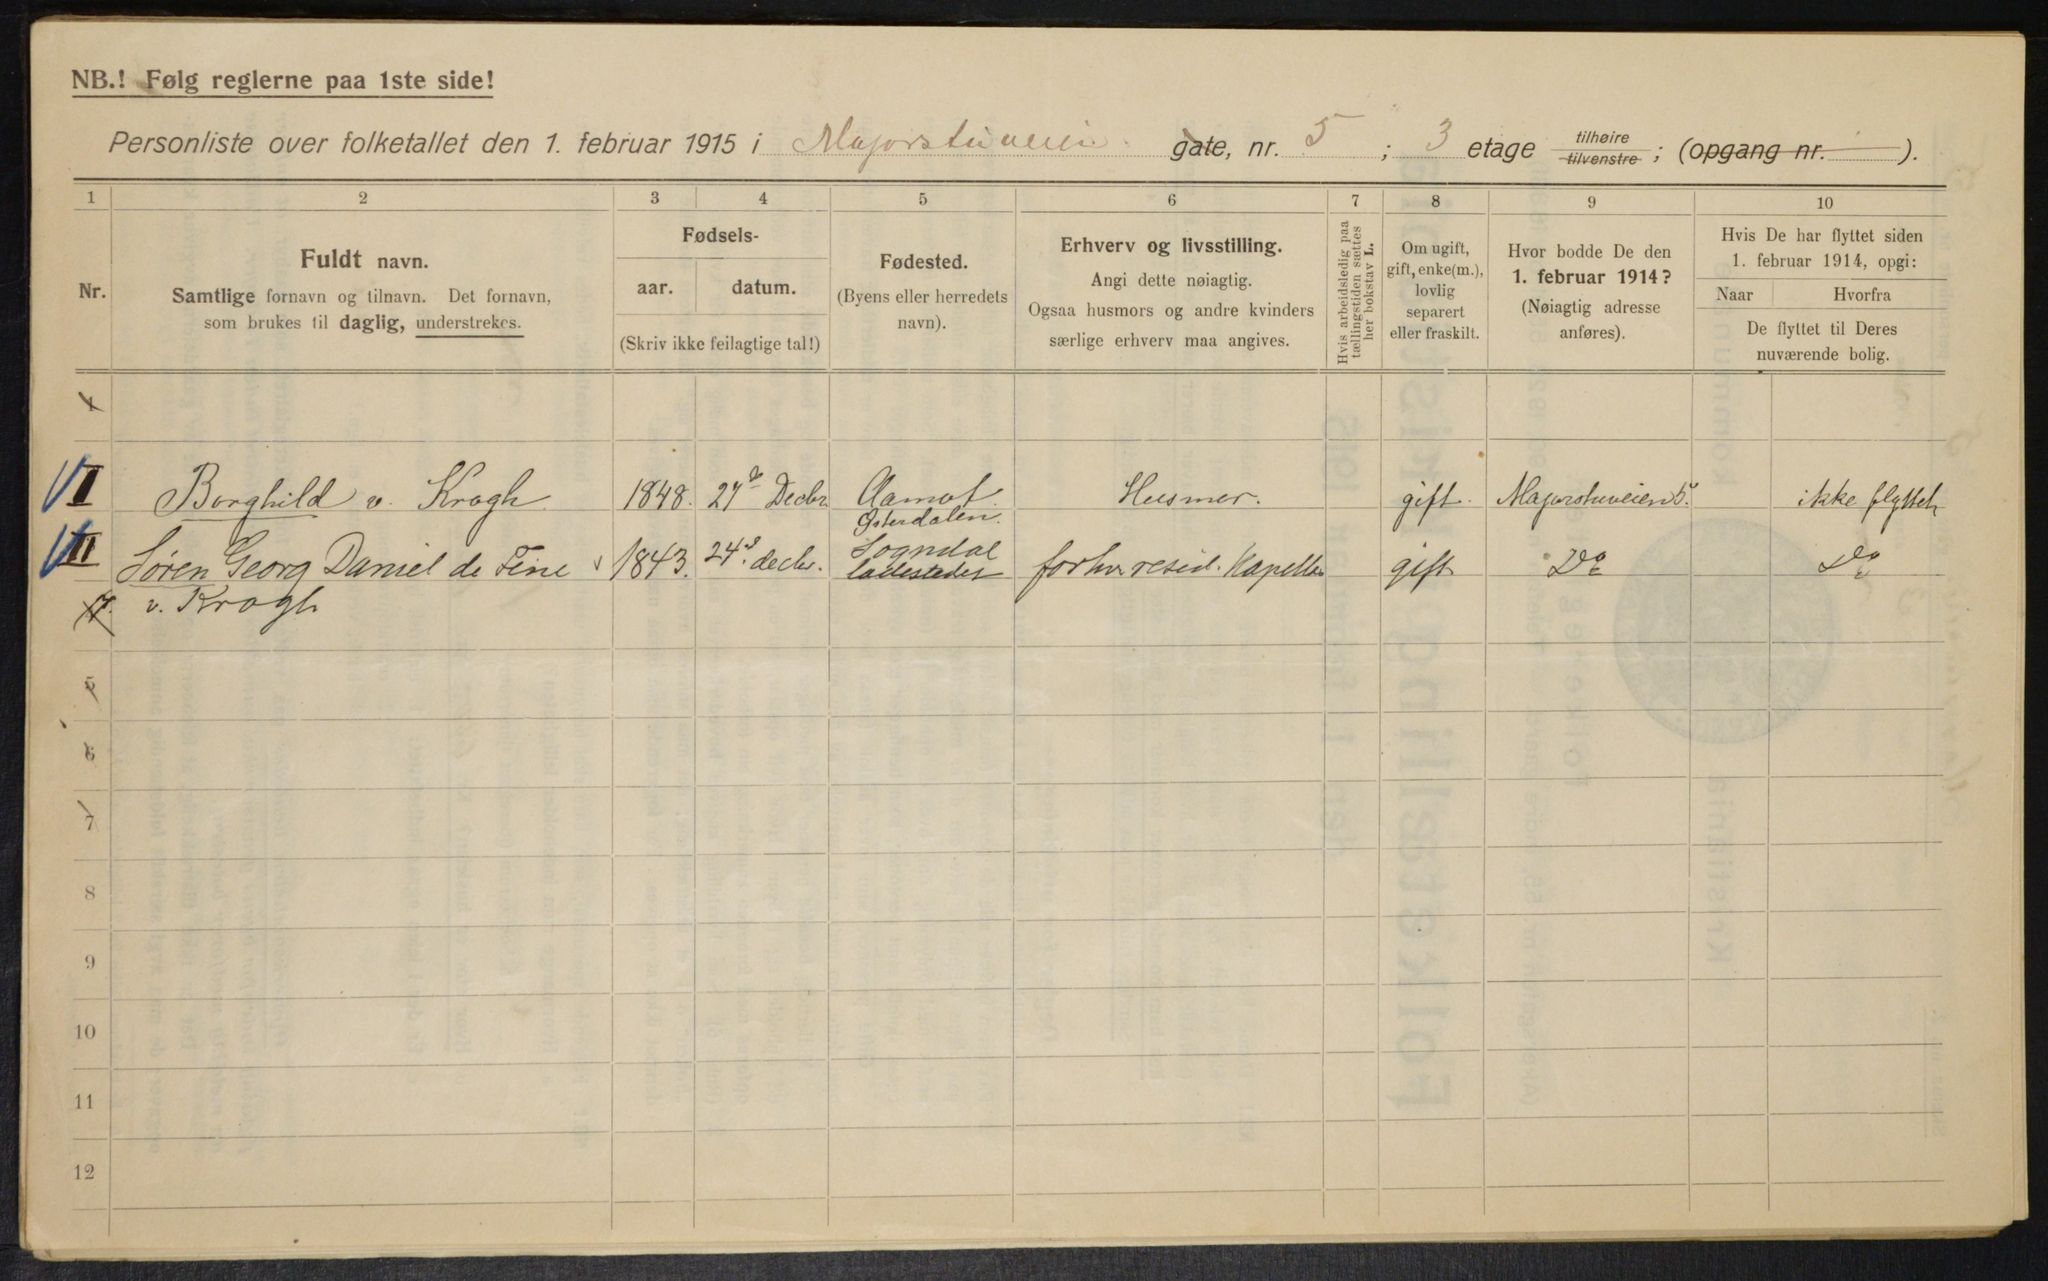 NB.! Følg reglerne paa 1ste side!
Personliste over folketallet den 1. februar 1915 i Majorstuveien gate, nr. 5 ; 3 etage tilhøire tilvenstre ; (opgang nr. ).
1 2 3 4 5 6 7 8 9 10
Nr.
Fuldt navn.
Samtlige fornavn og tilnavn. Det fornavn,
som brukes til daglig, understrekes.
Fødsels-
aar. datum.
(Skriv ikke feilagtige tal!)
Fødested.
(Byens eller herredets
navn).
Erhverv og livsstilling.
Angi dette nøiagtig.
Ogsaa husmors og andre kvinders
særlige erhverv maa angives.
Hvis arbeidsledig paa
tællingstiden sættes
her bokstav L.
Om ugift,
gift, enke(m.),
lovlig
separert
eller fraskilt.
Hvor bodde De den
1. februar 1914?
(Nøiagtig adresse
anføres).
Hvis De har flyttet siden
1. februar 1914, opgi:
Naar Hvorfra
De flyttet til Deres
nuværende bolig.
1
II Borghild v. Krogh 1848. 27de Decbr. Aamot Husmor. gift. Majorstuveien 5. ikke flyttet
Østerdalen.
III Søren Georg Daniel de Fine 1843. 24de decbr. Sogndal forhv. resid. Kapellan gift Do Do
ladested
v. Krogh
5
6
7
8
9
10
11
12